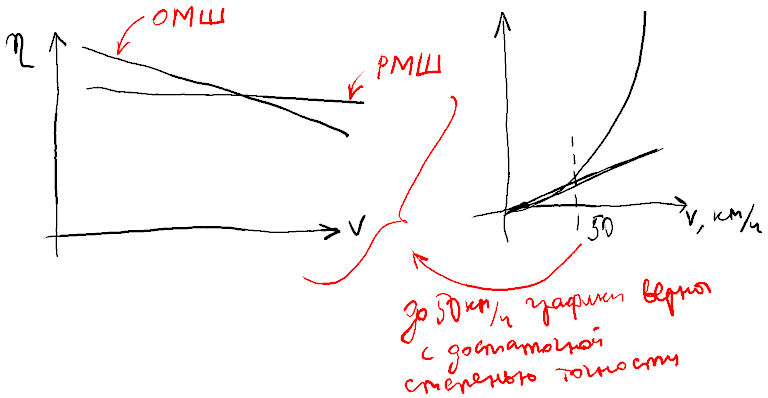 ОМШ
η
РМШ
V
50
V, км/ч
до 50 км/ч графики верны
с достаточной
степенью точности